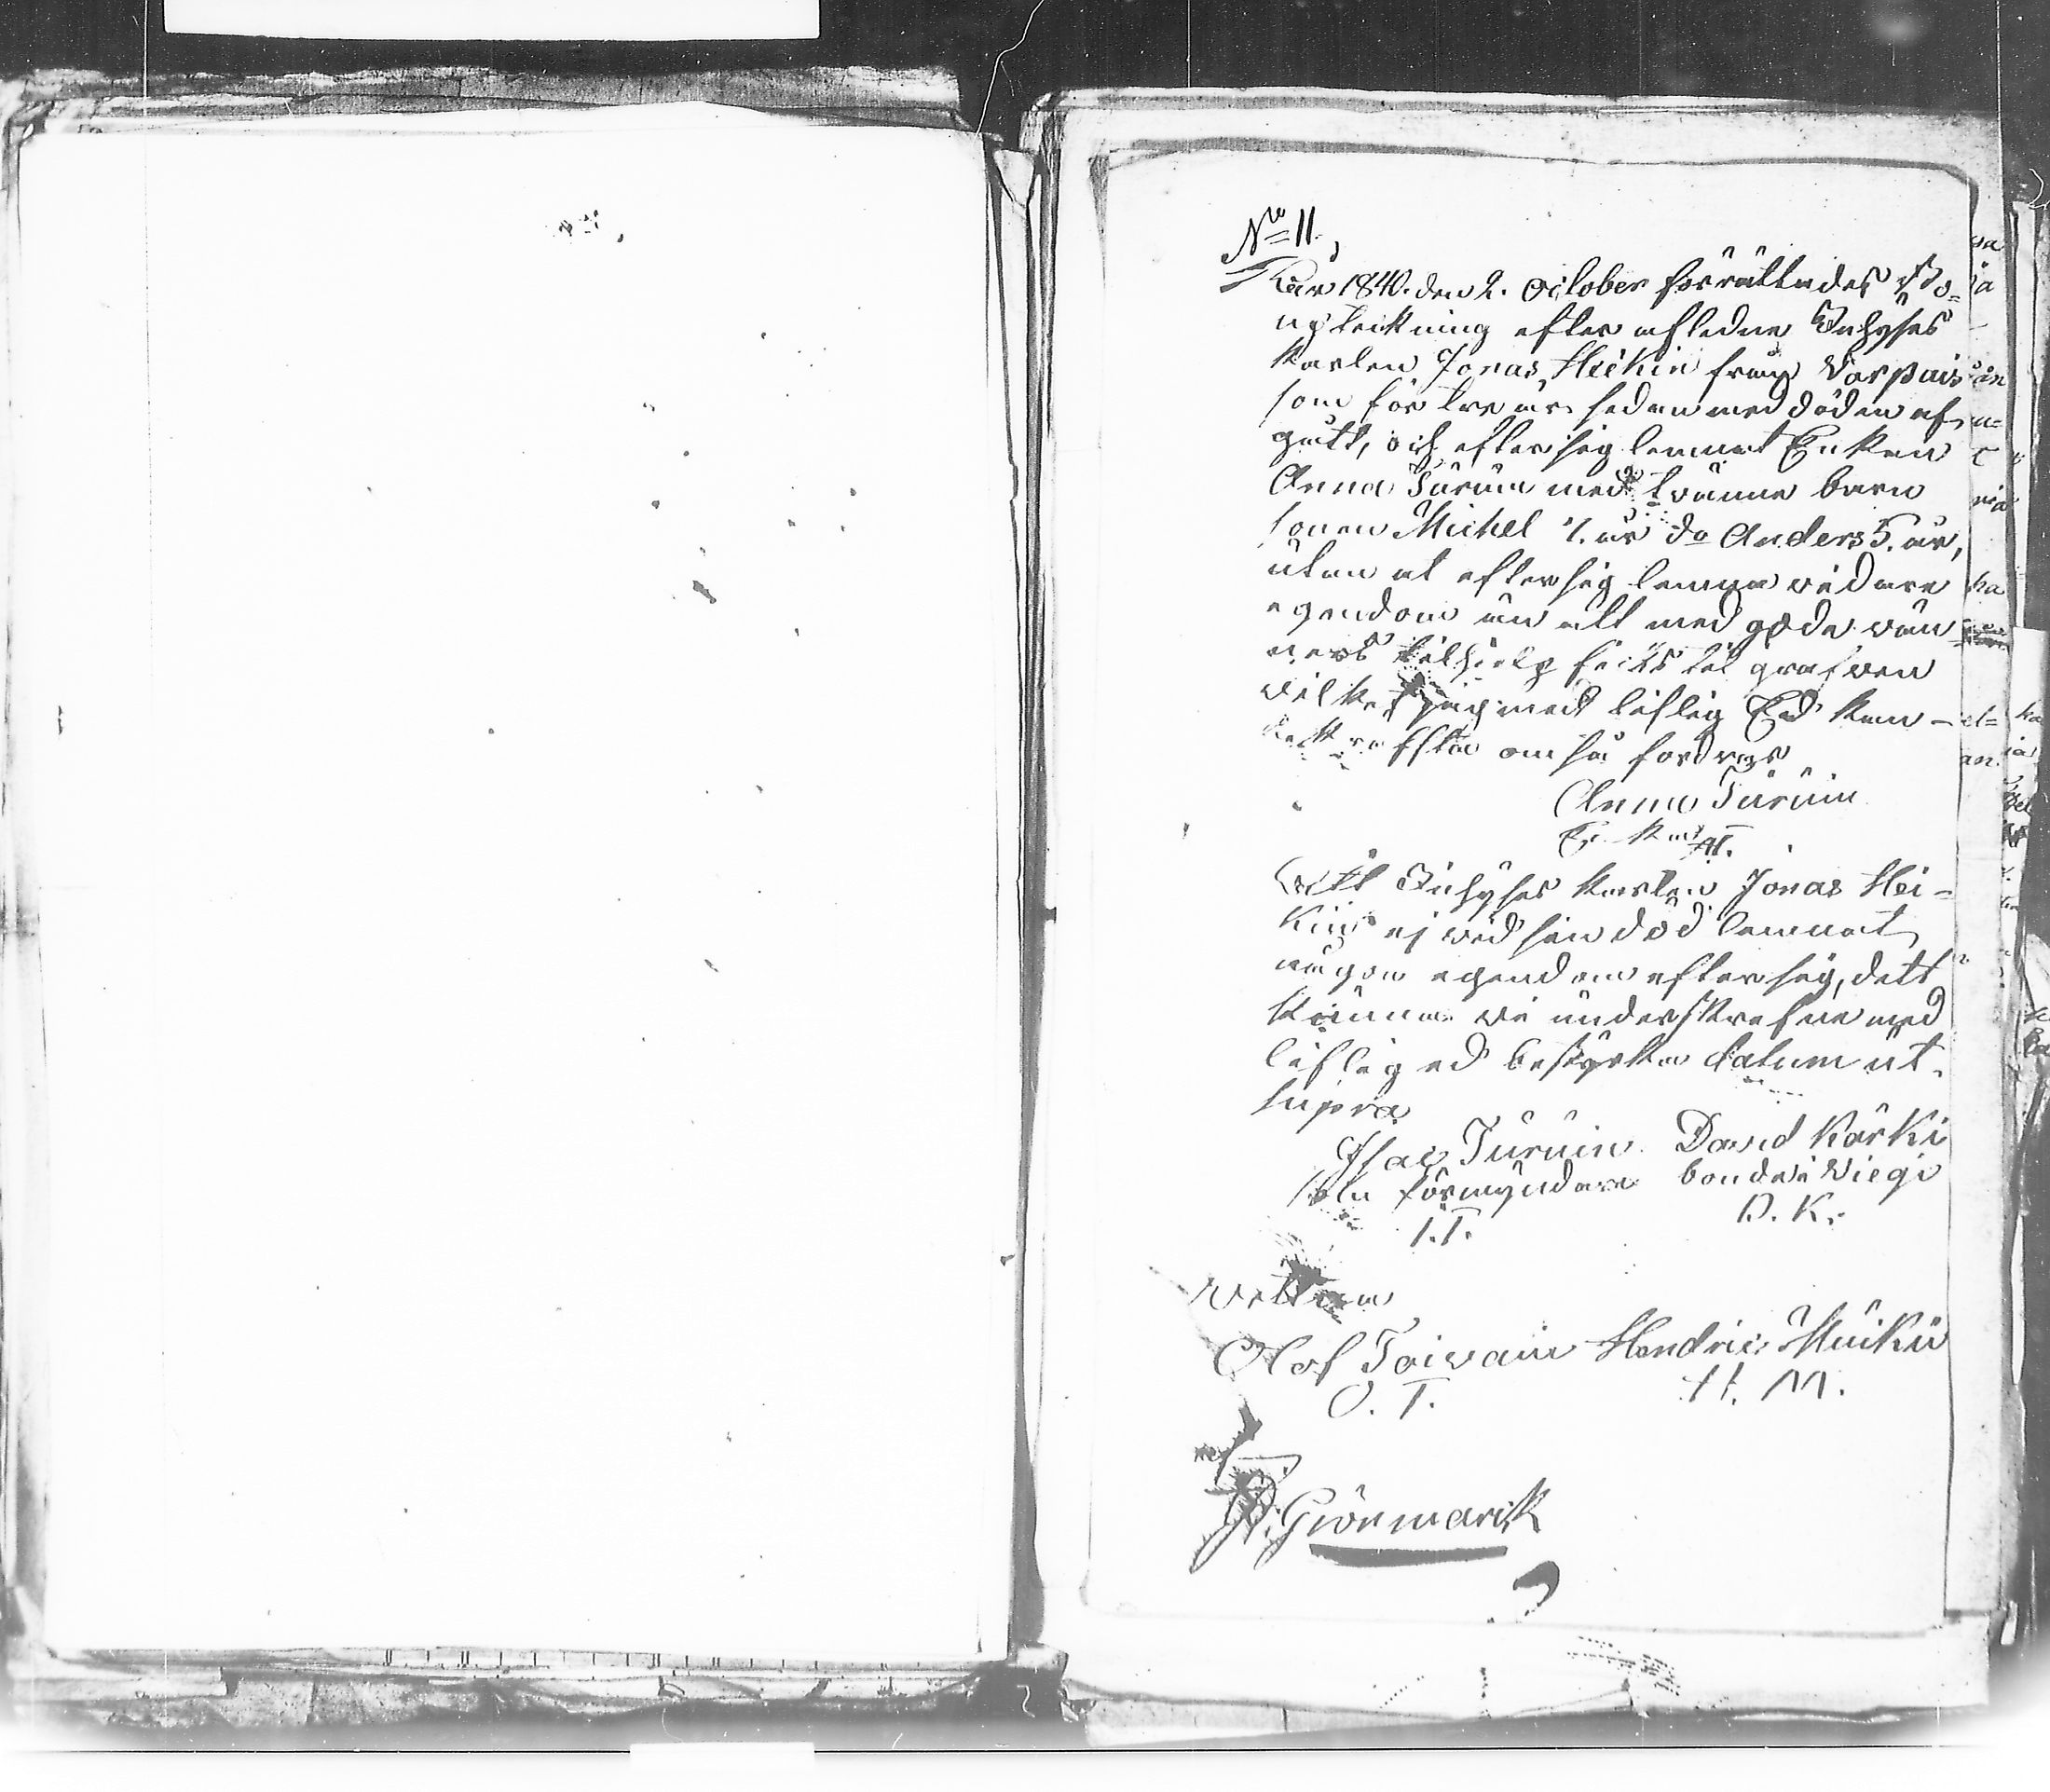 No 11.
År 1840. den 2. October förrättades Bo=
upteckning efter aflidne Inhyses
karlen Jonas Heikin från Varpais
som för tre år sedan med döden af-
gått, och efter sig lemnat Enkan
Anna Turuin med tvänne barn
sonen Michel 7. år do Anders 5. år,
utan at efter sig lemna vidare
egendom än alt med goda vän
ners tilhielp ficks til grafven
vilket jag med liflig Ed kan -
bekräffta om så fordras
Anna Turuin
Enka
Att Inhyses karlen Jonas Hei-
kin ej vid sin död lemnat
någon egendom efter sig, dett
kunna vi underskrefne med
liflig ed bestyrka datum ut.
supra
Isac Turuin. David Kärki
förmyndare bonde i Viegi
I.T. D. K.
Vittna
Olof Toivain Hendric Muikü
O. T. H. M.